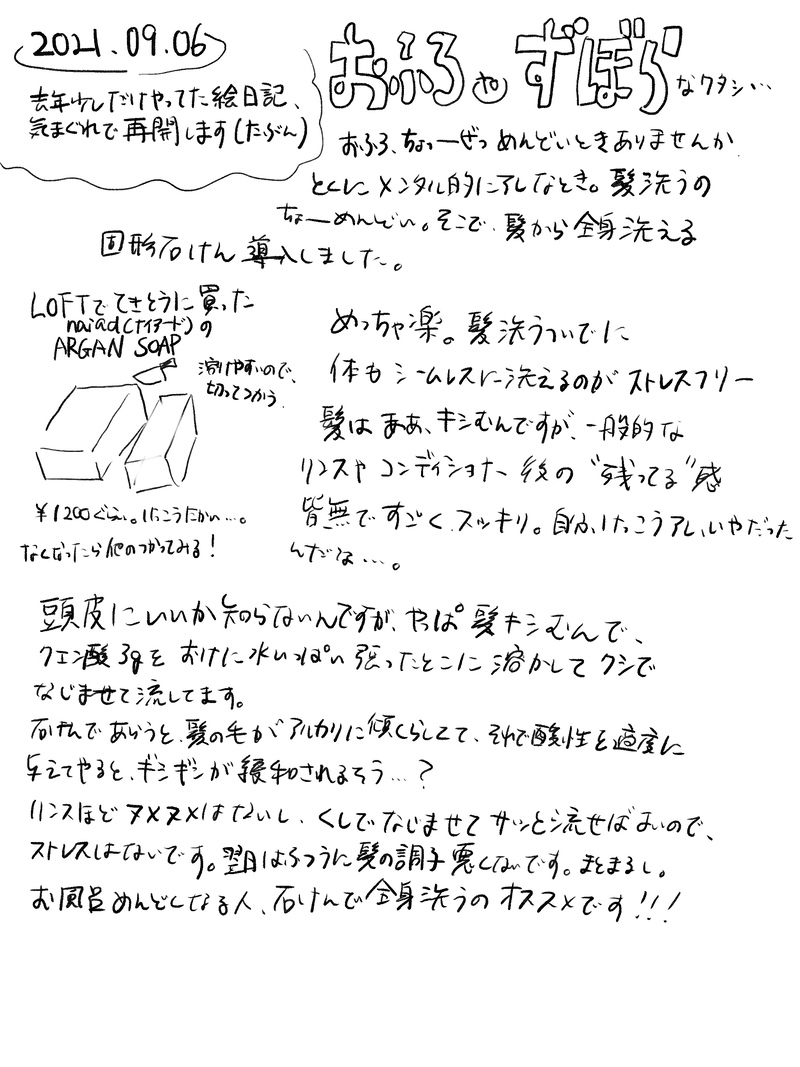 2021.09.06
去年少しだけやってた絵日記、
気まぐれで再開します(たぶん)
おふろ や ずぼら なワタシ…
おふろ、ちょっーぜつ めんどいときありませんか
とくに メンタル的にアレなとき。髪洗うの
ちょーめんどい。そこで、髪から全身洗える
固形石けん導入しました。
LOFTでてきとうに買った
naiad(ナイアード)の
ARGAN SOAP
溶けやすいので、
切ってつかう
¥1200ぐらい。けっこうたかい…。
なくなったら他のつかってみる!
めっちゃ楽。髪洗うついでに
体も シームレスに洗えるのが ストレスフリー
髪は まあ、キシむんですが、一般的な
リンスや コンディショナー 後の "残ってる"感
皆無で すごく スッキリ。自分、けっこうアレ、いやだった
んだな…。
頭皮にいいか知らないんですが、やっぱ 髪キシむんで、
クエン酸 3gを おけに水いっぱい 張ったとこに 溶かして クシで
なじませて流してます。
石けんで あらうと、髪の毛が アルカリに傾くらしくて、それで酸性を適度に
与えてやると、ギシギシが 緩和されるそう…?
リンスほど ヌメヌメはないし、くしで なじませて サッと流せばよいので、
ストレスはないです。翌日はふつうに髪の調子 悪くないです。まとまるし。
お風呂めんどくなる人、石けんで全身洗うの オススメです!!!